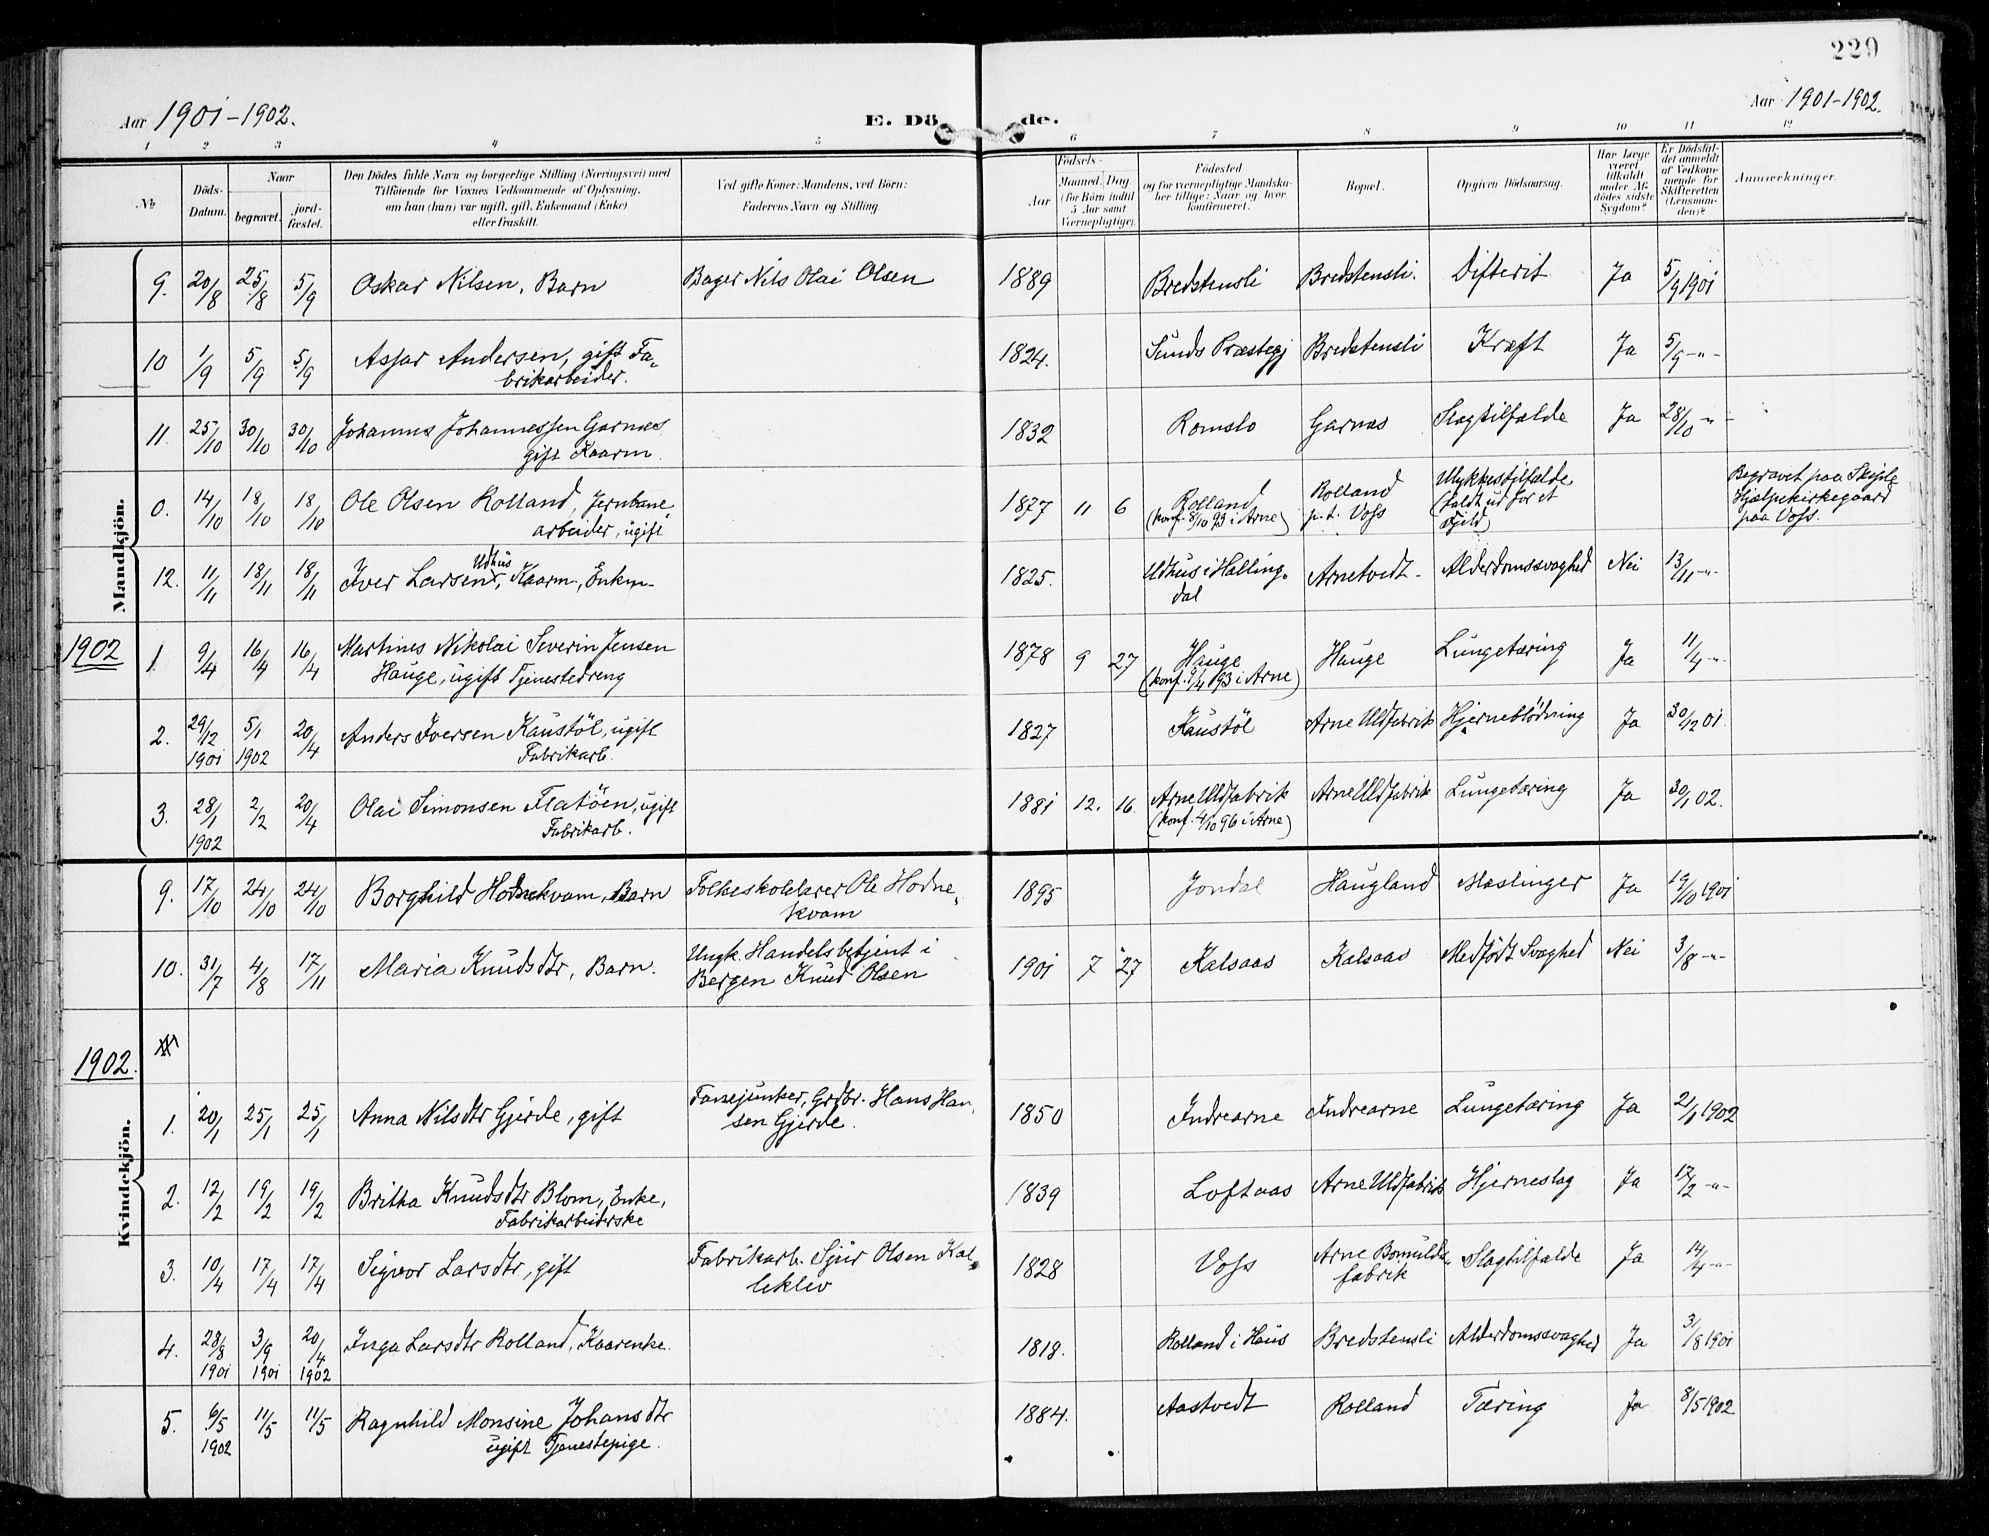 229
Aar 1901-1902.
E. Döde.
Aar 1901-1902.
1 2 3 4 5 6 7 8 9 10 11 12
No
Döds-Datum.
Naar
begravet.
jord-fæstet.
Den Dödes fulde Navn og borgerlige Stilling (Næringsvei) med
Tilföiende for Voxnes Vedkommende af Oplysning,
om han (hun) var ugift, gift, Enkemand (Enke)
eller fraskilt.
Ved gifte Koner: Mandens, ved Börn:
Faderens Navn og Stilling.
Födsels-
Aar
Maaned. Dag
(for Börn indtil
5 Aar samt
Værnepligtige)
Födested
og for værnepligtige Mandska-
ber tillige: Naar og hvor
konfirmeret.
Bopæl.
Opgiven Dödsaarsag.
Har Læge
været
tilkaldt
under Af-
dödes sidste
Sygdom?
Er Dödsfal-
det anmeldt
af Vedkom-
mende for
Skifteretten
(Lensman-
den)?
Anmærkninger.
Mandkjön.
9. 20/8 25/8 5/9 Oskar Nilsen, Barn Bager Nils Olai Olsen 1889 Bredstensli Bredstensli. Difterit Ja 5/9 1901
10 1/9 5/9 5/9 Assar Andersen, gift Fa-
brikarbeider. 1824. Sunds Præstegj Bredstensli Kræft Ja 5/9 -"-
11. 25/10 30/10 30/10 Johannes Johannessen Garnæs
gift Kaarm. 1832 Romslo Garnæs Slagtilfælde Ja 28/10 -"-
0. 14/10 18/10 18/10 Ole Olsen Rolland, Jernbane-
arbeider, ugift 1877 11 6 Rolland
(konf. 8/10 93 i Arne) Rolland
p.t. Voss Ulykkestilfælde
(faldt ud for et
Fjeld) Begravet paa
Hjælpekirkegaard
paa Voss.
12. 11/11 18/11 18/11 Iver Larsen Udhus, Kaarm., Enkm. 1825. Udhus i Halling-
dal Arnetvedt Alderdomssvaghed Nei 13/11 -"-
1902
1. 9/4 16/4 16/4 Martines Nikolai Severin Jensen
Hauge, ugift Tjenestedreng 1878 9 27 Hauge
(konf. 9/4 93 i Arne) Hauge Lungetæring Ja 11/4 -"-
2. 29/12 1901 5/1 1902 20/4 Anders Iversen Kaustöl, ugift
Fabrikarb. 1827 Kaustöl Arne Uldfabrik Hjerneblödning Ja 30/12 01.
3. 28/1 1902 2/2 20/4 Olai Simonsen Flatöen, ugift
Fabrikarb. 1881 12. 16. Arne Uldfabrik
(konf. 4/10 96 i Arne) Arne Uldfabrik Lungetæring Ja 30/1 02.
Kvindekjön.
9. 17/10 24/10 24/10 Borghild Hodnekvam, Barn Folkeskolelærer Ole Hodne-
kvam 1895 Jondal Haugland Mæslinger Ja 19/10 1901
10. 31/7 4/8 17/11 Maria Knudsdtr, Barn. Ungk. Handelsbetjent i
Bergen Knud Olsen 1901 7 27 Kalsaas Kalsaas Medfödt Svaghed Nei 3/8 -"-
1902.
1. 20/1 25/1 25/1 Anna Nilsdtr Gjerde, gift Fanejunker, Grdbr. Hans Han-
sen Gjerde. 1850 Indrearne Indrearne Lungetæring Ja 21/1 1902
2. 12/2 19/2 19/2 Britha Knudsdtr Blom, Enke,
Fabrikarbeiderske 1839 Loftaas Arne Uldfabrik Hjerneslag Ja 17/2 -"-
3. 10/4 17/4 17/4 Sigvor Larsdtr, gift Fabrikarb. Sjur Olsen Kal-
leklev 1828 Voss Arne Bomulds-
fabrik Slagtilfælde Ja 14/4 -"-
4. 28/8 1901 3/9 1901 20/4 1902 Inga Larsdtr Rolland, Kaarenke. 1818. Rolland i Haus Bredstensli Alderdomssvaghed Ja 31/8 1901
5. 6/5 1902 11/5 11/5 Ragnhild Monsine Johansdtr
ugift Tjenestepige. 1884. Aastvedt Rolland Tæring Ja 8/5 1902